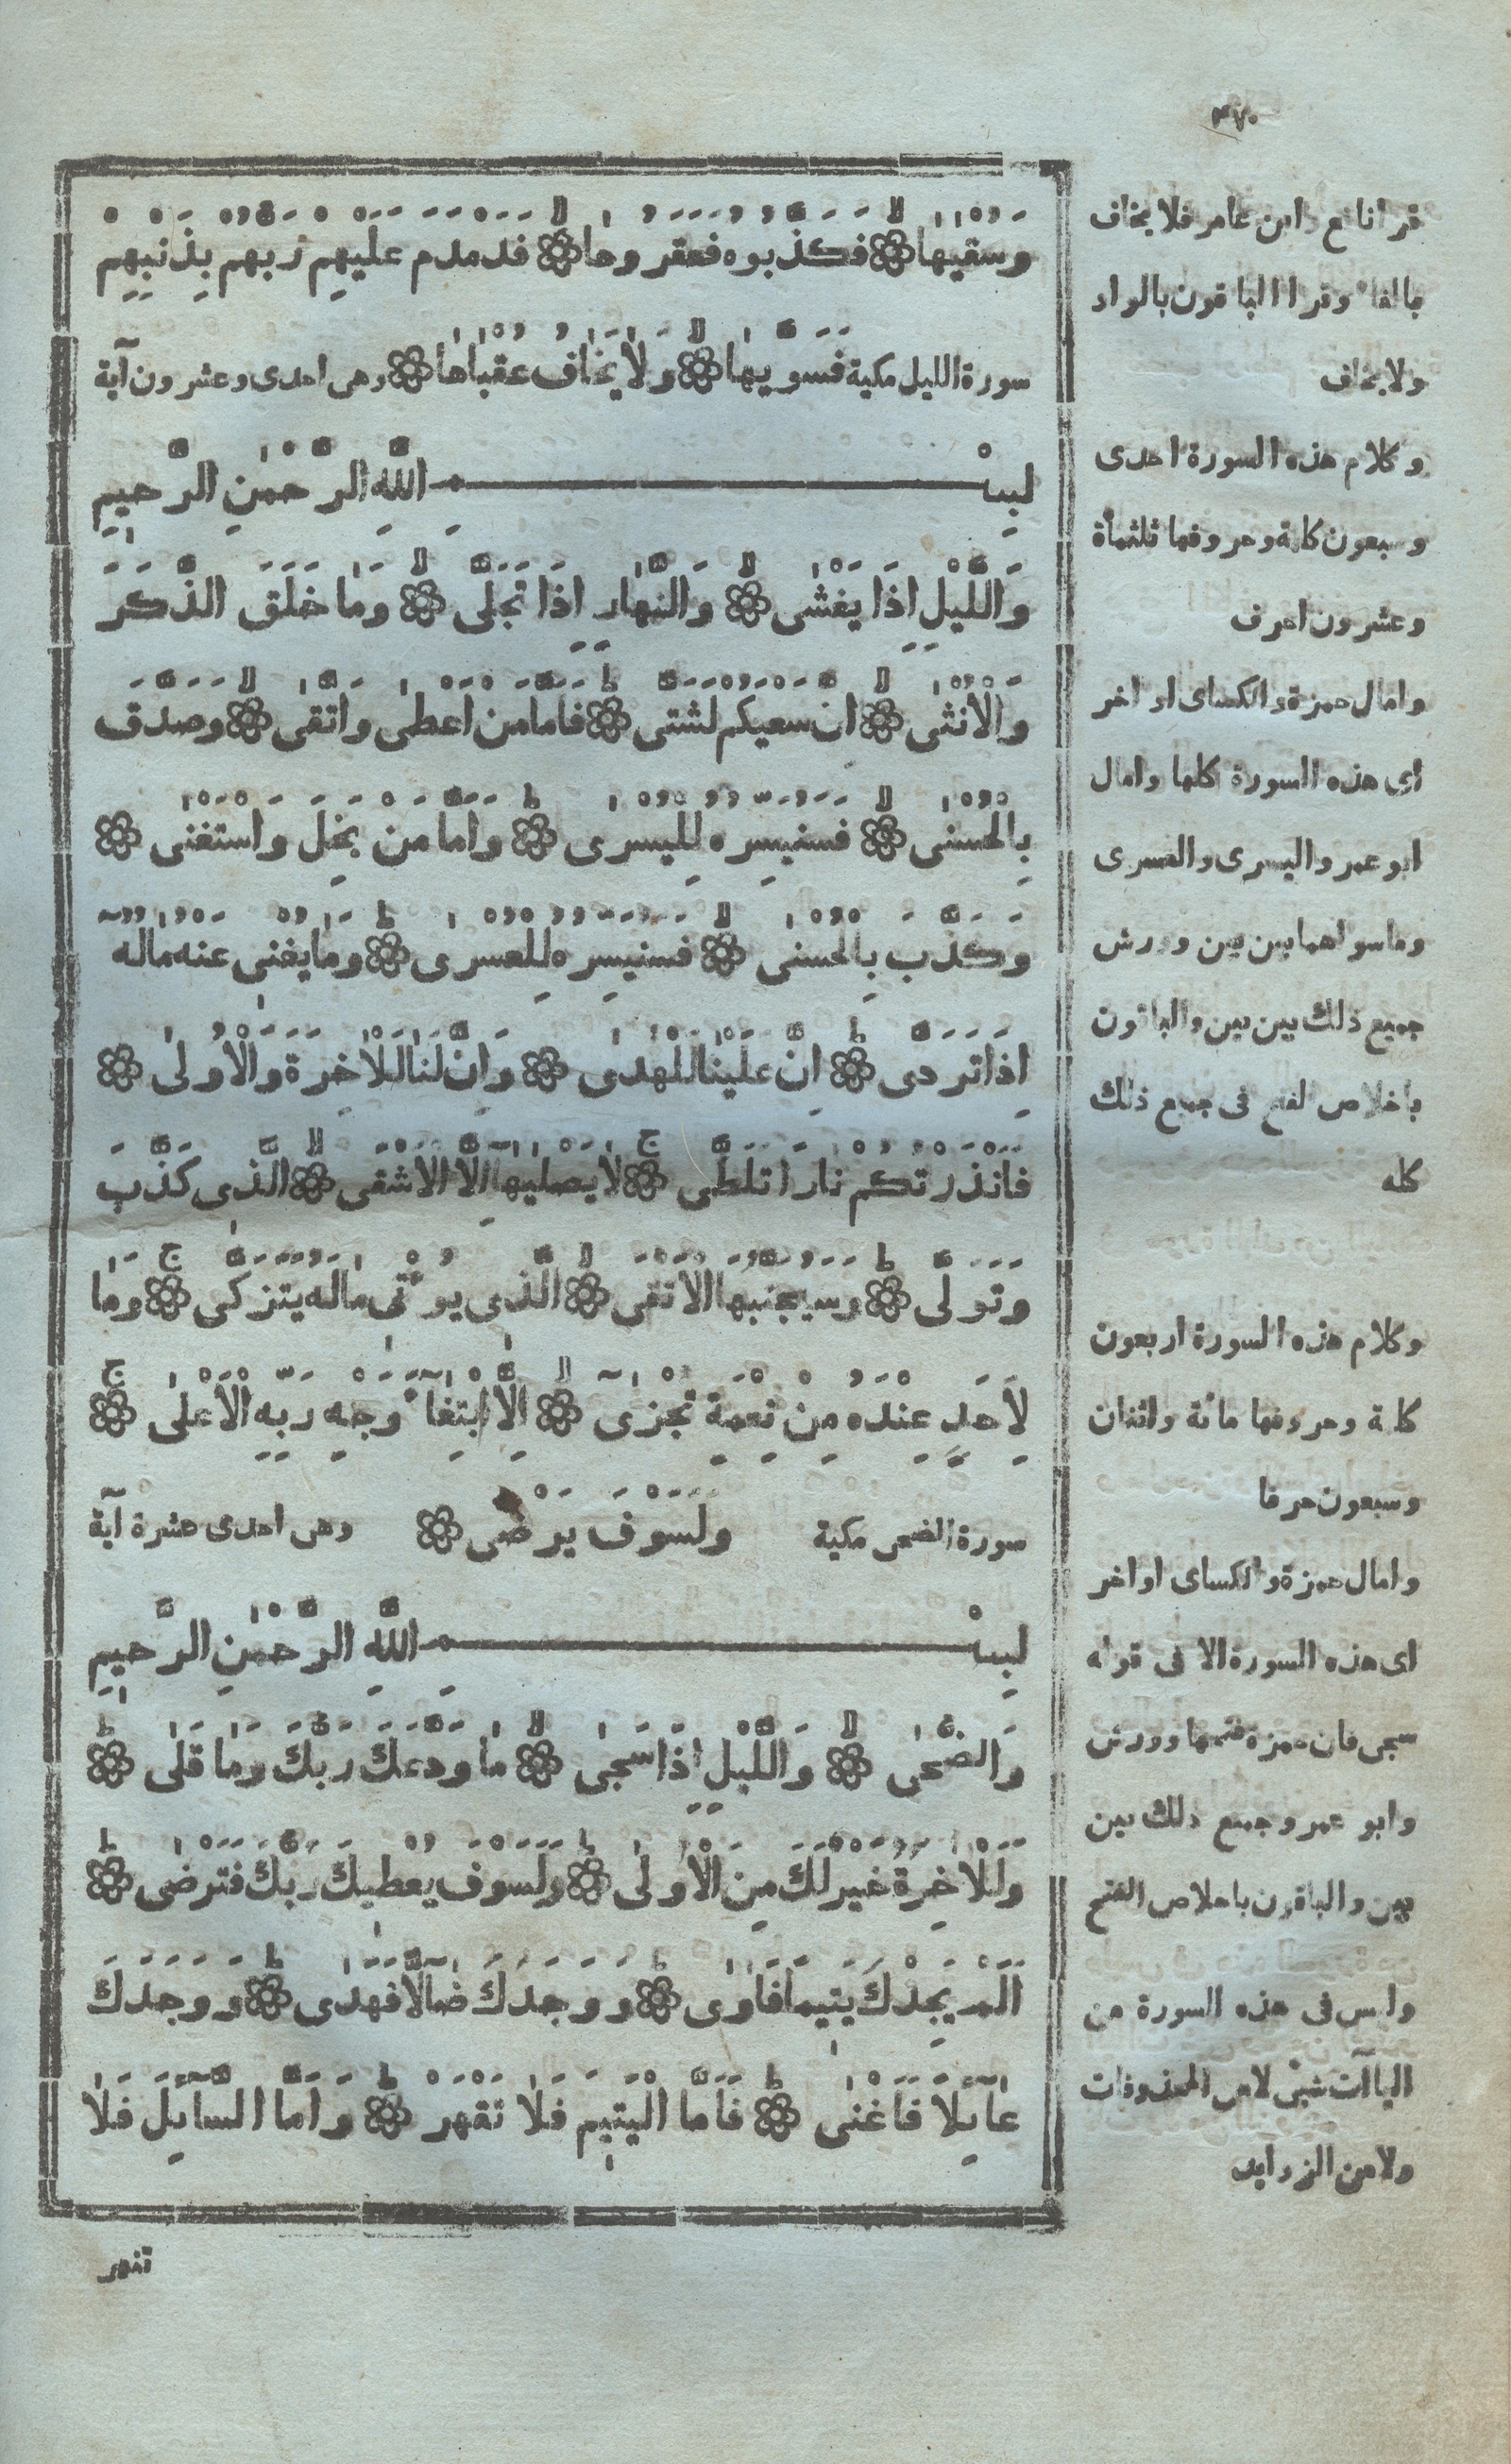 ٤٧٠
وَسُقْيٰهَا فَكَذَّبُوهُ فَعَقَرُوهَا فَدَمْدَمَ عَلَيْهِمْ رَبُّهُمْ بِذَنْبِهِمْ
سورة الليل مكية فَسَوّٰيهَا وَلَا يَخَافُ عُقْبَاهَا وهى احدى وعشرون آية
بِسْمِ اللّٰهِ الرَّحْمٰنِ الرَّحِيمِ
وَاللَّيْلِ اِذَا يَغْشٰى وَالنَّهَارِ اِذَا تَجَلّٰى وَمَا خَلَقَ الذَّكَرَ
وَالْاُنْثٰى اِنَّ سَعْيَكُمْ لَشَتّٰى فَاَمَّا مَنْ اَعْطٰى وَاتَّقٰى وَصَدَّقَ
بِالْحُسْنٰى فَسَنُيَسِّرُهُ لِلْيُسْرٰى وَاَمَّا مَنْ بَخِلَ وَاسْتَغْنٰى
وَكَذَّبَ بِالْحُسْنٰى فَسَنُيَسِّرُهُ لِلْعُسْرٰى وَمَا يُغْنِى عَنْهُ مَالُهُ
اِذَا تَرَدّٰى اِنَّ عَلَيْنَا لَلْهُدٰى وَاِنَّ لَنَا لَلْاٰخِرَةَ وَالْاُولٰى
فَاَنْذَرْتُكُمْ نَارًا تَلَظّٰى لَا يَصْلٰيهَا اِلَّا الْاَشْقَى الَّذِى كَذَّبَ
وَتَوَلّٰى وَسَيُجَنَّبُهَا الْاَتْقَى الَّذِى يُؤْتِى مَالَهُ يَتَزَكّٰى وَمَا
لِاَحَدٍ عِنْدَهُ مِنْ نِعْمَةٍ تُجْزٰى اِلَّا ابْتِغَآءَ وَجْهِ رَبِّهِ الْاَعْلٰى
سورة الضحى مكية وَلَسَوْفَ يَرْضٰى وهى احدى عشرة آية
بِسْمِ اللّٰهِ الرَّحْمٰنِ الرَّحِيمِ
وَالضُّحٰى وَاللَّيْلِ اِذَا سَجٰى مَا وَدَّعَكَ رَبُّكَ وَمَا قَلٰى
وَلَلْاٰخِرَةُ خَيْرٌ لَكَ مِنَ الْاُولٰى وَلَسَوْفَ يُعْطِيكَ رَبُّكَ فَتَرْضٰى
اَلَمْ يَجِدْكَ يَتِيمًا فَاٰوٰى وَوَجَدَكَ ضَآلًّا فَهَدٰى وَوَجَدَكَ
عَآئِلًا فَاَغْنٰى فَاَمَّا الْيَتِيمَ فَلَا تَقْهَرْ وَاَمَّا السَّآئِلَ فَلَا
تنهر
قرا نافع وابن عامر فلا يخاف
بالفاء وقرا الباقون بالواو
ولا يخاف
وكلام هذه السورة احدى
وسبعون كلمة وحروفها ثلثمأة
وعشرون احرف
وامال حمزة والكساى اواخر
اى هذه السورة كلها وامال
ابو عمرو اليسرى والعسرى
وما سواهما بين بين وورش
جميع ذلك بين بين والباقون
باخلاص الفتح فى جميع ذلك
كله
وكلام هذه السورة اربعون
كلمة وحروفها مائة واثنان
وسبعون حرفا
وامال حمزة والكساى اواخر
اى هذه السورة الا فى قوله
سجى فان حمزة فتحها وورش
وابو عمرو جميع ذلك بين
بين والباقون باخلاص الفتح
وليس فى هذه السورة من
الياآت شئ لا من المحذوفات
ولا من الزوايد